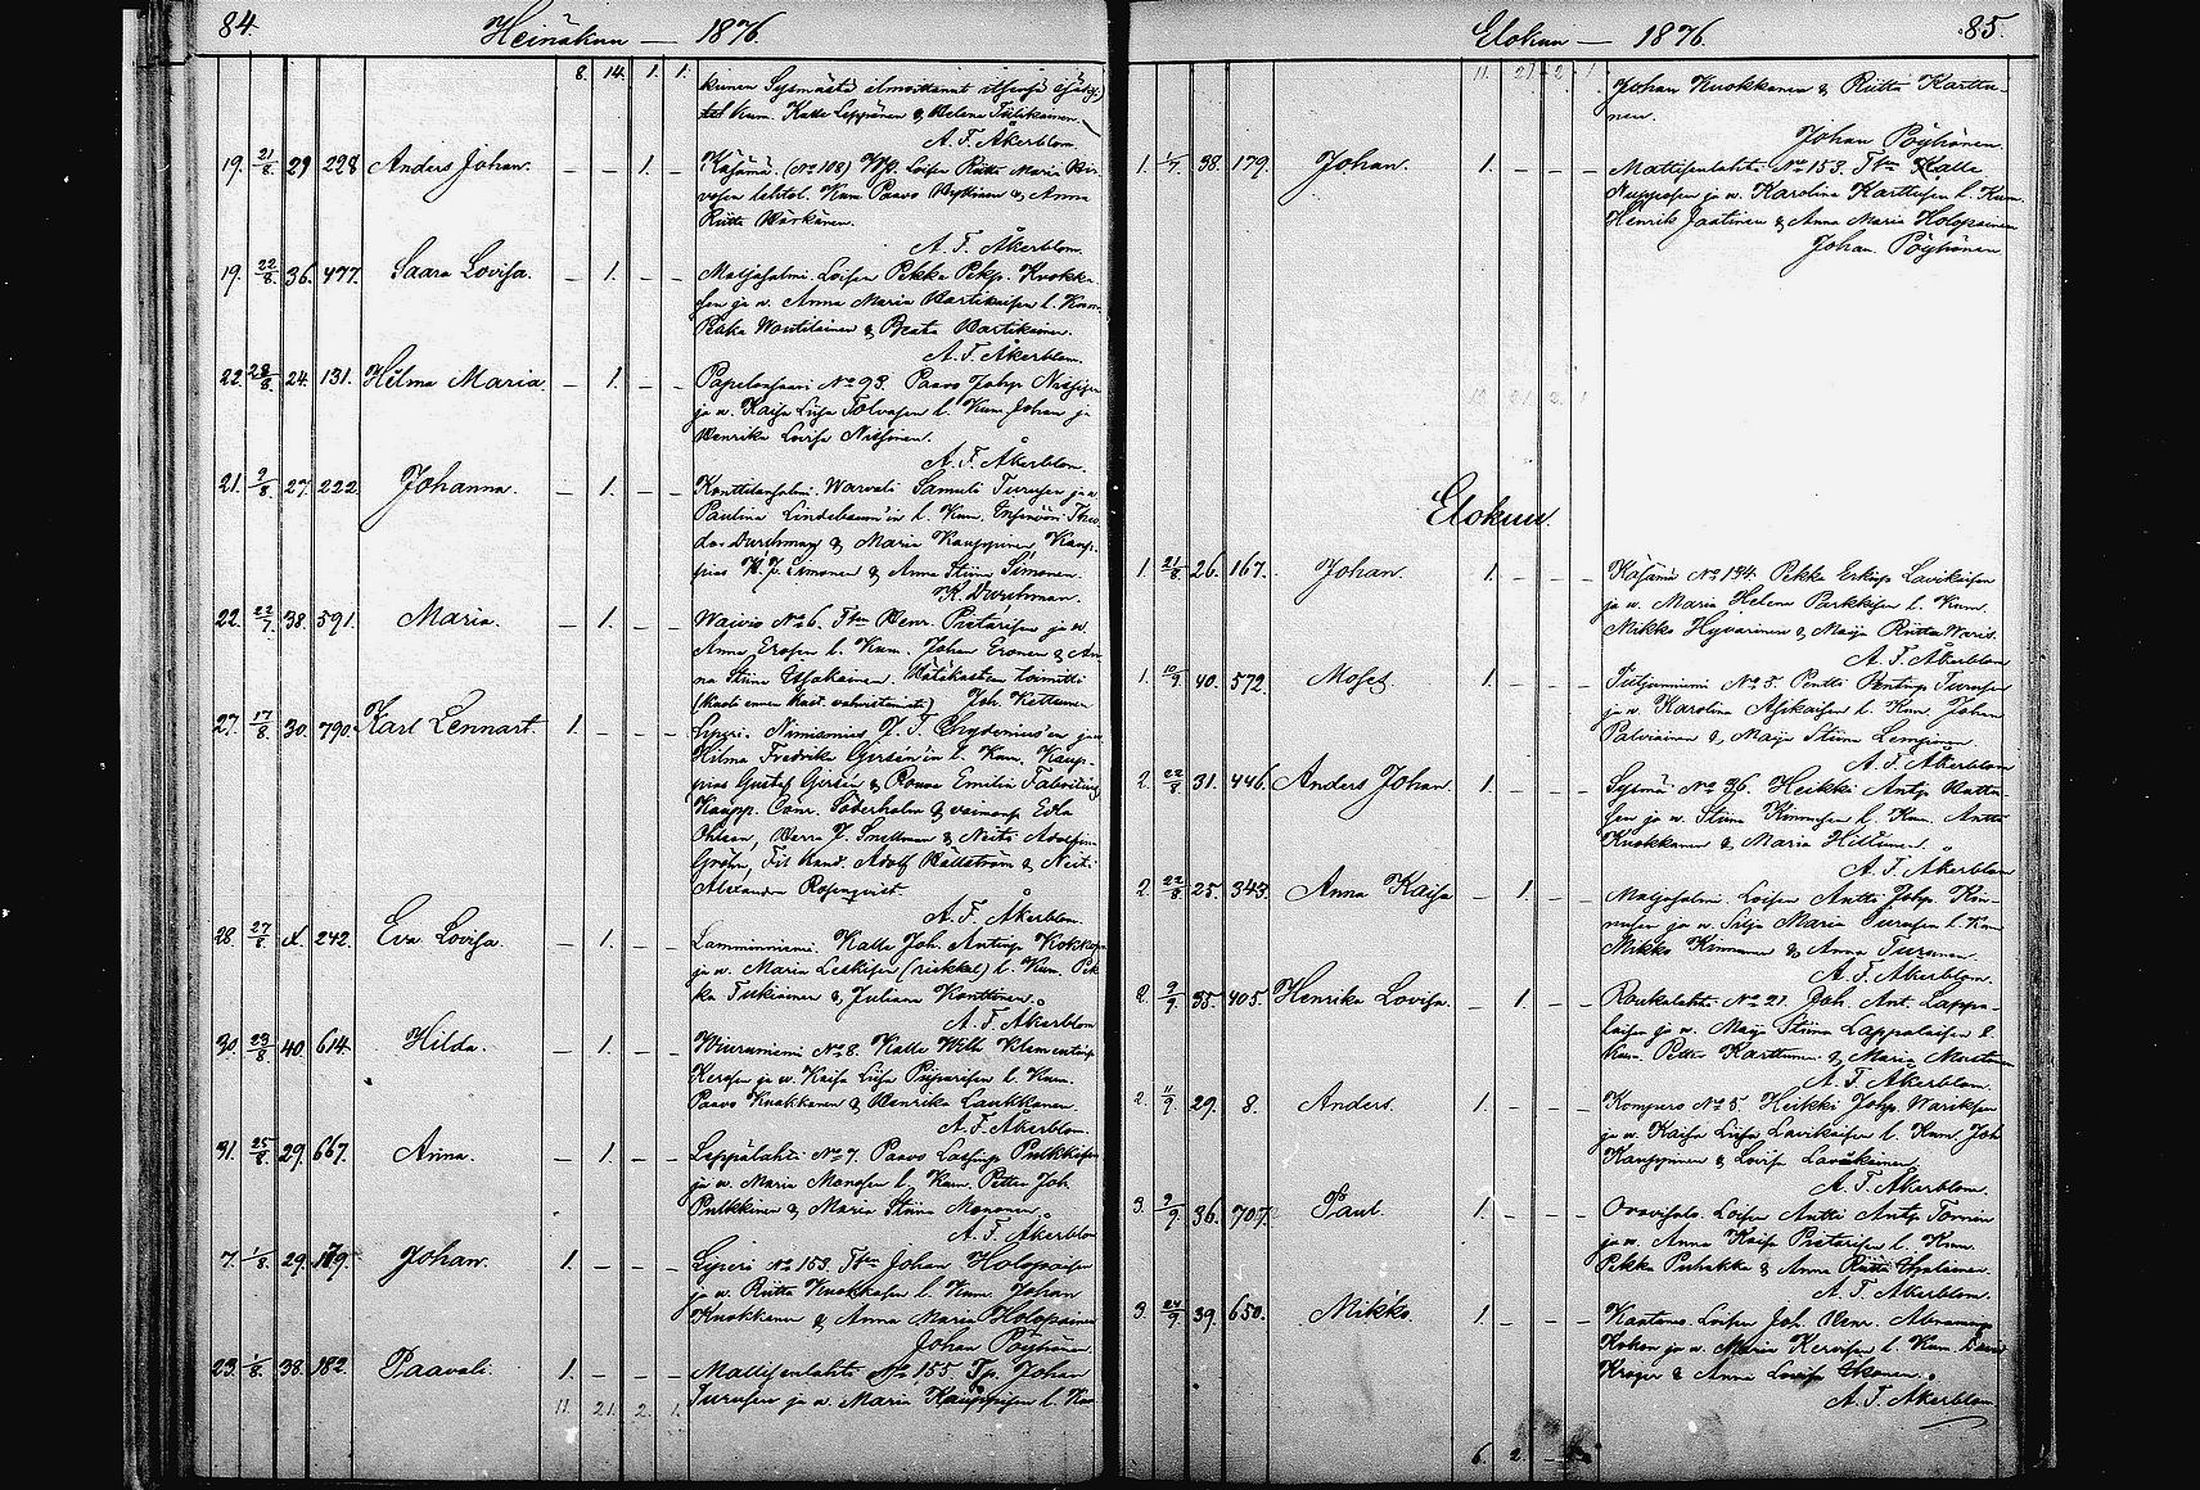 84.
Heinäkuu — 1876.
8. 14. 1. 1.
Sysmästä ilmoittanut
Kum. Kalle Leppänen & Helena Tiilikainen.
A. F. Åkerblom.
19. 21/8. 29 228 Anders Johan. — — 1. — Käsämä. (No 108) Loisen Riitta Maria
lehtol. Kum. Paavo & Anna
Riitta Wärkänen.
A. F. Åkerblom.
19. 22/8. 36. 477. Saara Lovisa. — 1. — — Matjasalmi. Loisen Pekka Pekp. Kuokka-
sen ja v. Anna Maria Wartikaisen l. Kum.
Pekka Woutilainen & Beata Wartikainen.
A. F. Åkerblom.
22. 28/8. 24. 131. Hilma Maria. — 1. — — Papelonsaari No 93. Paavo Johp Nissisen
ja v. Kaisa Liisa Tolvasen l. Kum. Johan ja
Henrika Lovisa Nissinen.
A. F. Åkerblom.
21. 9/8. 27. 222. Johanna. — 1. — — Konttilansalmi. Warvali Samuli Turusen ja v.
Paulina Lindebaum'in l. Kum. Insinööri Theo-
dor Durchman & Maria Kauppinen, Kaup-
pias K. J. Simonen & Anna Stiina Simonen.
K. Durchman.
22. 22/7. 38. 591. Maria. — 1. — — Waivio No 6. Tten Henr. Pietarisen ja v.
Anna Erosen l. Kum. Johan Eronen & An-
na Stiina Hätäkasteen toimitti
(Kuoli ennen kast. vahvistamista) Joh. Kettunen
27. 17/8. 30. 790. Karl Lennart. 1. — — — Liperi. Nimismies J. T. Chydenius'en ja v.
Hilma Fredrika Girsén'in l. Kum. Kaup-
pias Gustaf Girsén & Rouva Emilia Fabritius,
Kaupp. Conr. Söderholm & vaimonsa Edla
Ohlson, Herra J. Snellman & Neiti Adolfina
Gröhn, Fil. kand. Adolf Hällström & Neiti
Alexandra Rosenqvist.
A. F. Åkerblom.
28. 27/8. 242. Eva Lovisa. — 1. — — Lamminniemi. Kalle Joh. Antinp Kokkosen
ja v. Maria Leskisen l. Kum. Pek-
ka Tukiainen & Juliana Konttinen.
A. F. Åkerblom
30. 23/8 40. 614. Hilda. — 1. — — Wiiruniemi No 8. Kalle Wilh. Klementinp
Kerosen ja v. Kaisa Liisa Piiparisen l. Kum.
Paavo Kuokkanen & Henrika Laukkanen.
A. F. Åkerblom.
31. 25/8. 29. 667. Anna. — 1. — — Leppälahti No 7. Paavo Lassinp Pulkkisen
ja v. Maria Monosen l. Kum. Petter Joh.
Pulkkinen & Maria Stiina Mononen.
A. F. Åkerblom
7. 1/8. 29. 179. Johan. 1. — — — Liperi No 153. Tten Johan Holopaisen
ja v. Riitta Kuokkasen l. Kum. Johan
Kuokkanen & Anna Maria Holopainen
Johan Pöyhönen.
23. 1/8. 38. 182. Paavali. 1. — — — Mattisenlahti No 155. Tp. Johan
Turusen ja v. Maria Kauppisen l. Kum.
11. 21. 2. 1.
Elokuu — 1876.
85.
11. 21. 2. 1
Johan Kuokkanen & Riitta Karttu-
nen.
Johan Pöyhönen.
1. 1/7. 38. 179. Johan. 1. — — — Mattisenlahti No 153. Tten Kalle
Nupposen ja v. Karolina Karttusen l. Kum.
Henrik Jaatinen & Anna Maria Holopainen
Johan Pöyhönen
21. 2. 1
Elokuu.
1. 21/8 26. 167. Johan. 1. — — — Käsämä No 134. Pekka Erkinp Lavikaisen
ja v. Maria Helena Parkkisen l. Kum.
Mikko Hyvärinen & Maija Riitta Waris.
A. F. Åkerblom
1. 10/9. 40. 572. Moses. 1. — — — Tutjunniemi No 5. Pentti Pentinp Turusen
ja v. Karolina Asikaisen l. Kum. Johan
Palviainen & Maija Stiina Lempinen.
A. F. Åkerblom
2. 22/8 31. 446. Anders Johan 1. — — — Sysmä No 36. Heikki Antp Hattu-
sen ja v. Stiina Kinnusen l. Kum. Antti
Kuokkanen & Maria Hiltunen.
A. F. Åkerblom
2. 22/8. 25. 343. Anna Kaisa — 1. — — Matjasalmi. Loisen Antti Johp. Kin-
nusen ja v. Silja Maria Turusen l. Kum
Mikko Kinnunen & Anna Turunen.
A. F. Åkerblom.
2. 9/9. 35. 405. Henrika Lovisa. — 1. — — Roukalahti No 21. Joh. Ant. Lappa-
laisen ja v. Maija Stiina Lappalaisen l.
Kum. Petter Karttunen & Maria Mustonen
A. F. Åkerblom.
2. 11/9. 29. 8. Anders. 1. — — — Kompero No 5. Heikki Johp. Wariksen
ja v. Kaisa Liisa Lavikaisen l. Kum. Joh
Kauppinen & Lovisa Lavikainen.
A. F. Åkerblom.
3. 9/9. 36. 707. Paul. 1. — — — Loisen Antti Antp Tornian
ja v. Anna Kaisa Pietarisen l. Kum.
Pekka Puhakka & Anna Riitta
A. F. Åkerblom.
3. 24/9. 39. 650. Mikko. 1. — — — Loisen Joh. Henr. Abramanp
Kokon ja v. Maria Kervisen l. Kum. David
Kröger & Anna Lovisa Ikonen.
A. F. Åkerblom.
6. 2. —